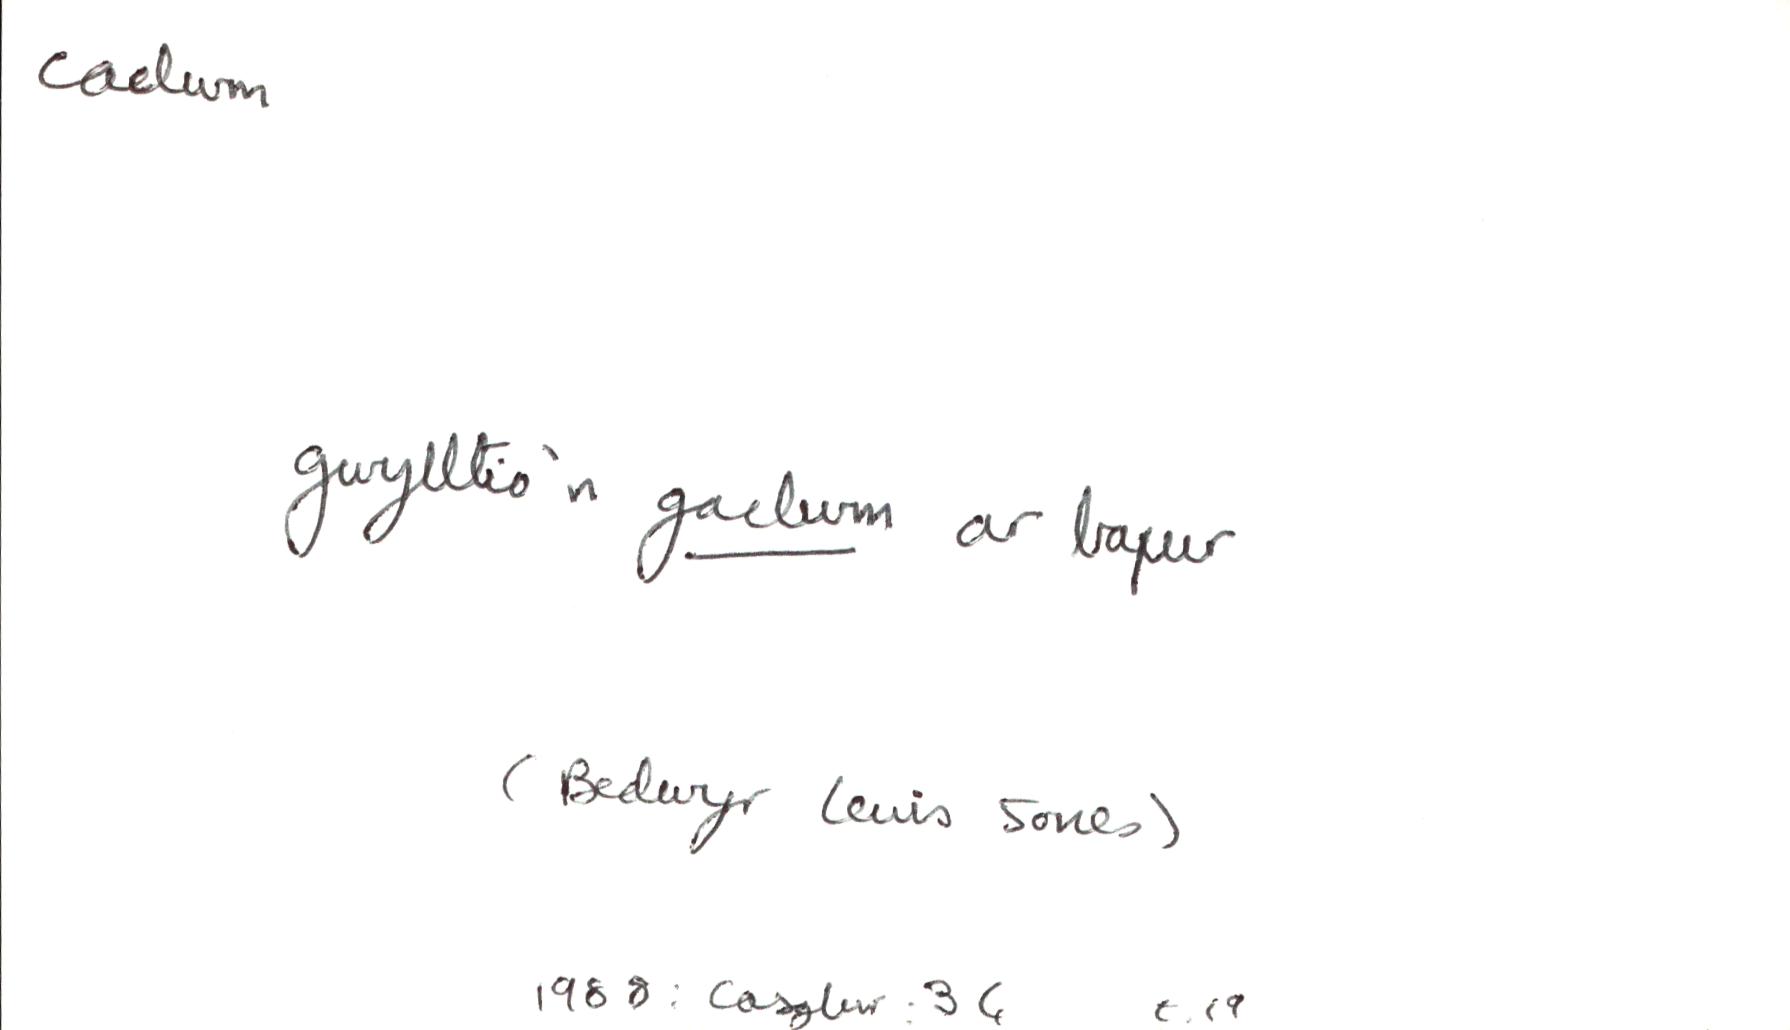 caclwm
gwylltio'n gaclwm ar bapur
(Bedwyr Lewis Jones)
1988: Casglwr: 36 t. 19